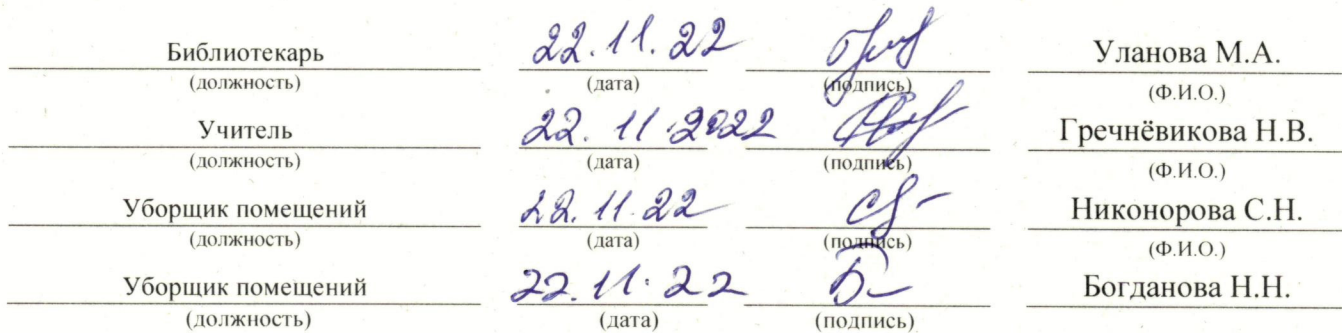 Библиотекарь 22.11.22 Уланова М.А.
(должность) (дата) (подпись) (Ф.И.О.)
Учитель 22.11.2022 Гречнёвикова Н.В.
(должность) (дата) (подпись) (Ф.И.О.)
Уборщик помещений 22.11.22 Никонорова С.Н.
(должность) (дата) (подпись) (Ф.И.О.)
Уборщик помещений 22.11.22 Богданова Н.Н.
(должность) (дата) (подпись)